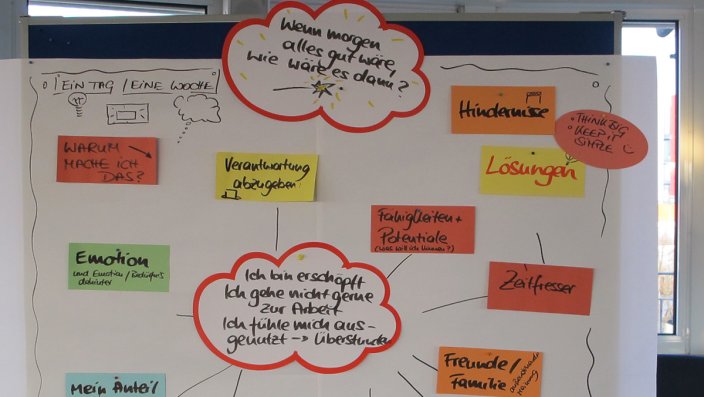 Wenn morgen
alles gut wäre,
wie wäre es dann?
EIN TAG / EINE WOCHE
Hindernisse
THINK BIG
KEEP IT
SIMPLE
WARUM
MACHE ICH
DAS?
Verantwortung
abzugeben
Lösungen
Fähigkeiten +
Potentiale
(was will ich können?)
Emotion
und Emotion / Bedürfnis
dahinter
Ich bin erschöpft
Ich gehe nicht gerne
zur Arbeit
Ich fühle mich aus-
genutzt -> Überstunden
Zeitfresser
Freunde /
Familie
Mein Anteil